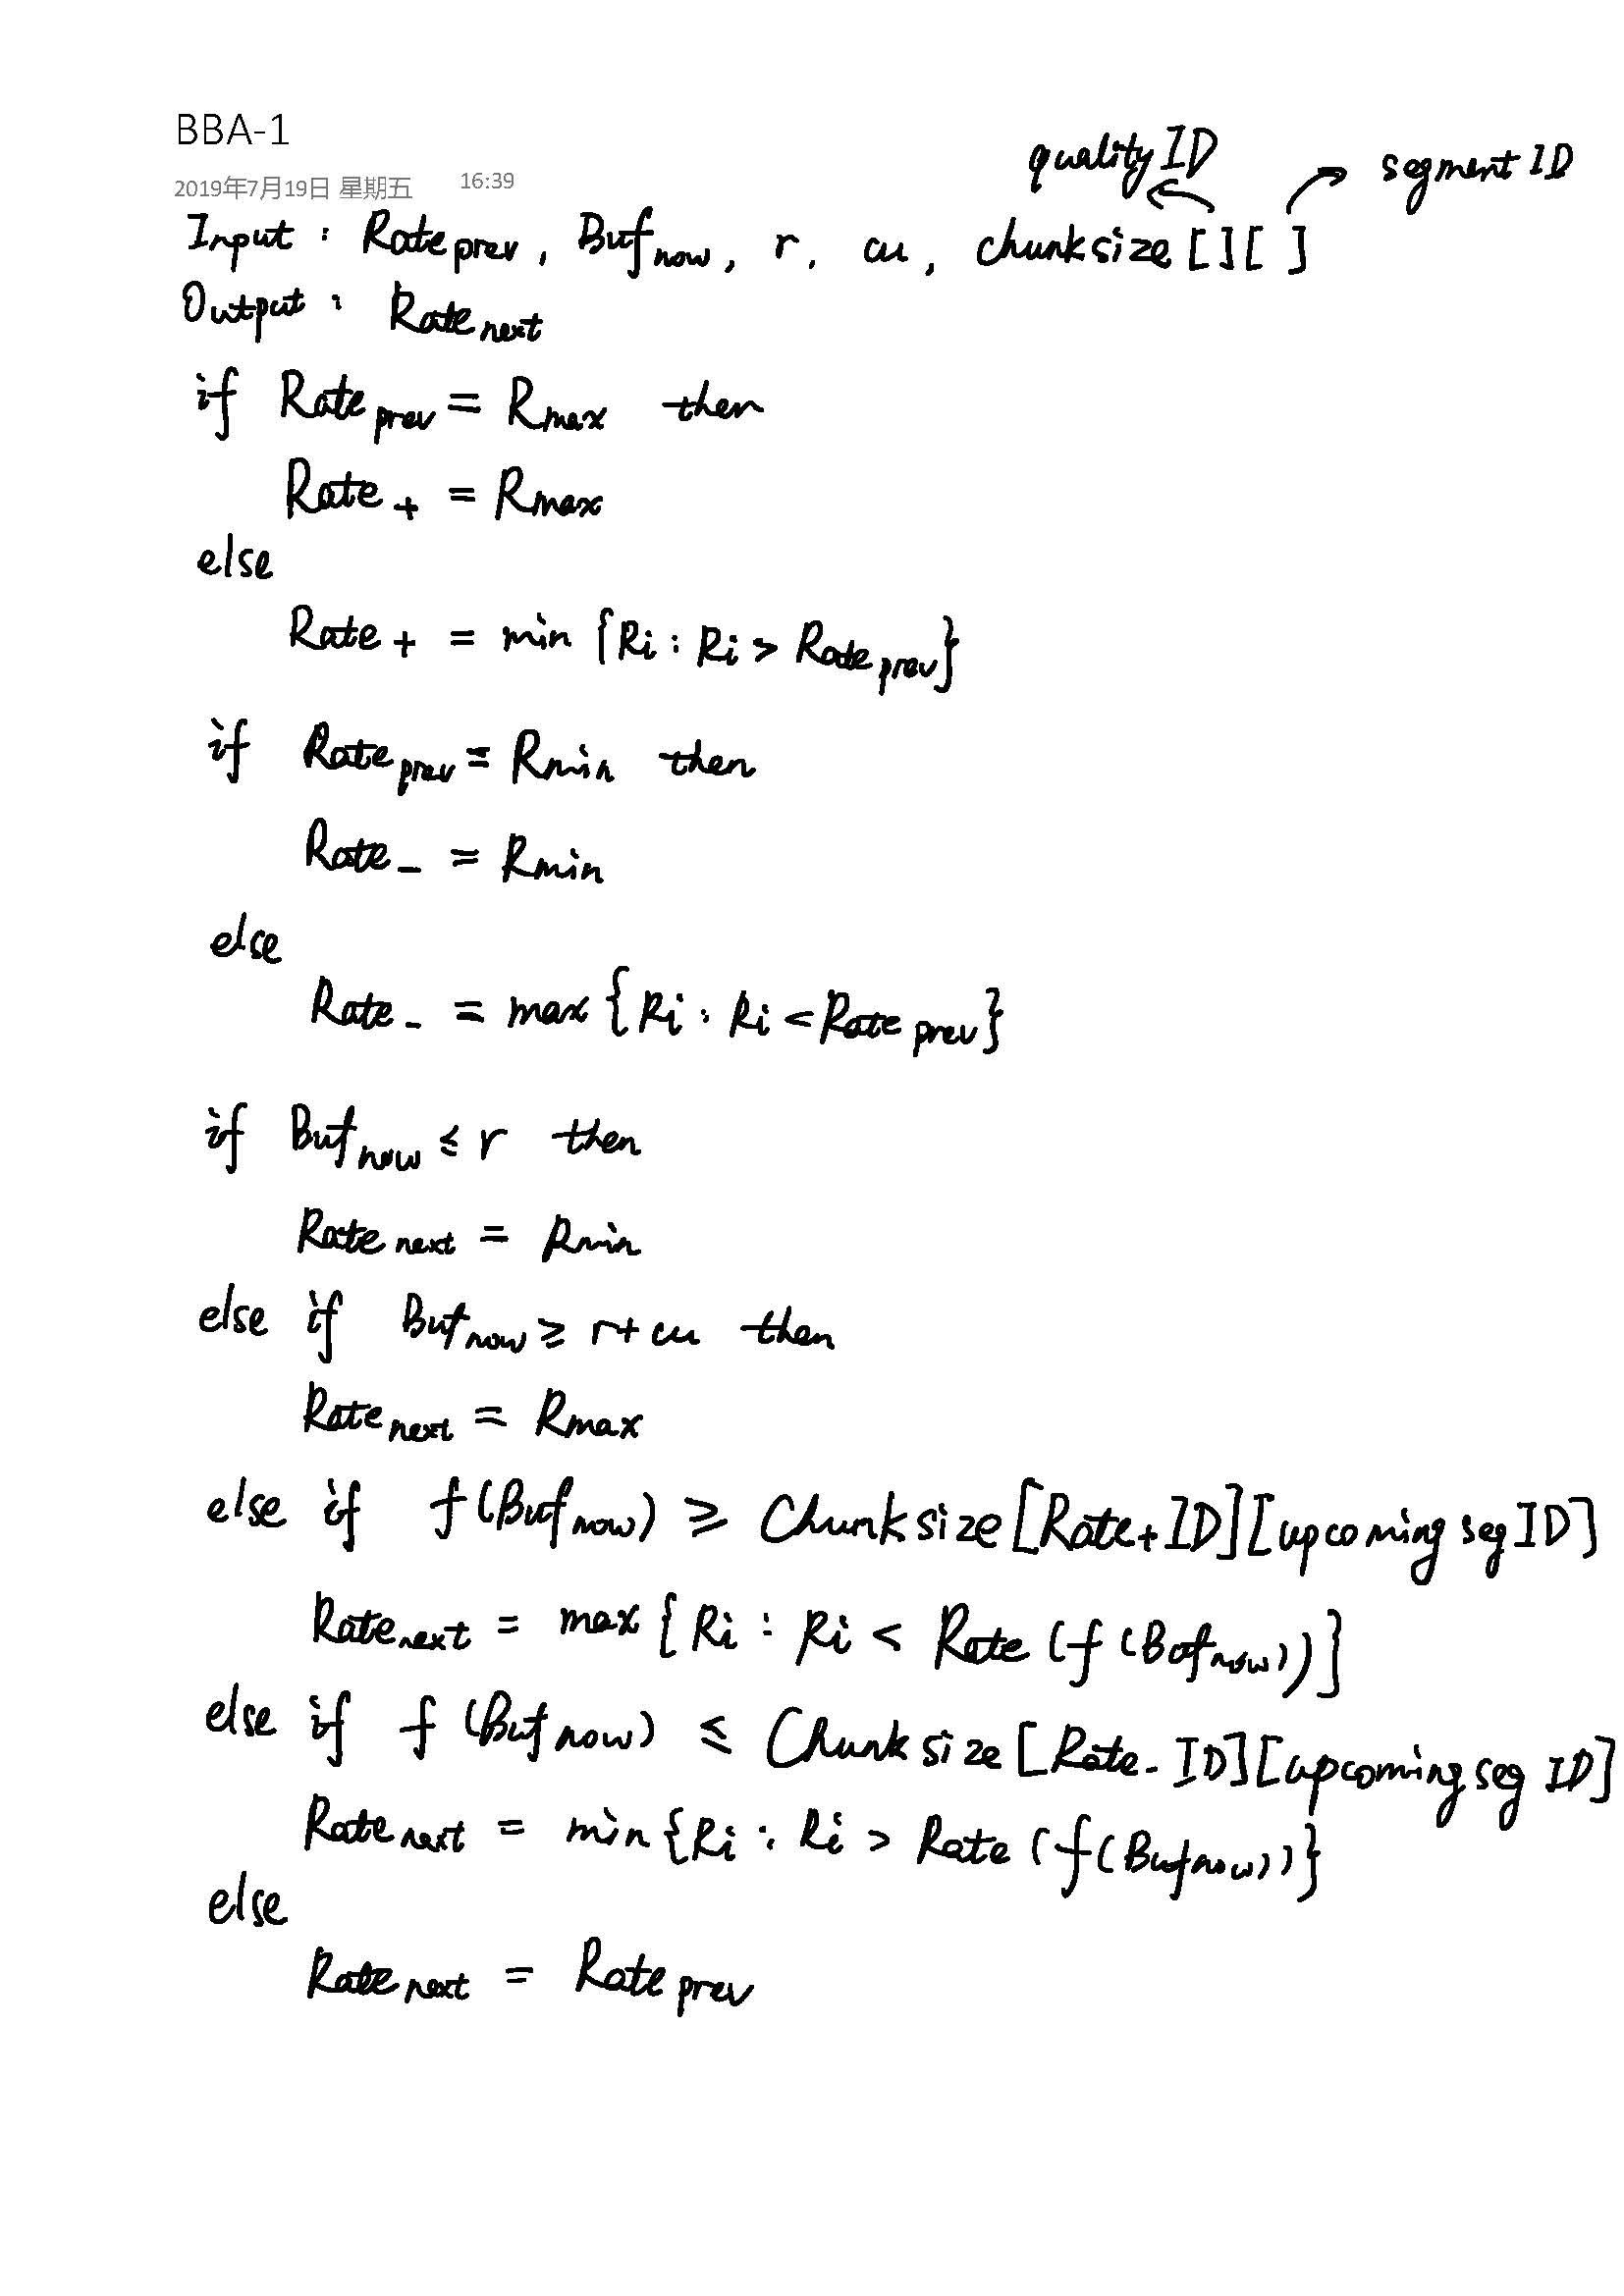 BBA-1
2019年7月19日 星期五 16:39
quality ID segment ID
Input : Rate prev, Buf now, r, cu, chunksize [ ] [ ]
Output : Rate next
if Rate prev = Rmax then
Rate + = Rmax
else
Rate + = min {Ri : Ri > Rate prev}
if Rate prev = Rmin then
Rate - = Rmin
else
Rate - = max {Ri : Ri < Rate prev}
if Buf now ≤ r then
Rate next = Rmin
else if Buf now ≥ r + cu then
Rate next = Rmax
else if f (Buf now) ≥ Chunksize [Rate+ ID] [upcoming seg ID]
Rate next = max {Ri : Ri < Rate (f (Buf now))}
else if f (Buf now) ≤ Chunksize [Rate- ID] [upcoming seg ID]
Rate next = min {Ri : Ri > Rate (f (Buf now))}
else
Rate next = Rate prev